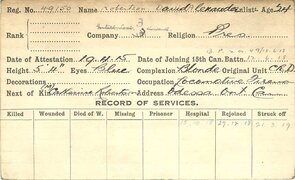 Reg. No. 49150 Name Robertson David Alexander Enlist. Age 24
Rank Company Religion Pres
Date of Attestation 19.4.15 Date of Joining 13th Can. Batt.
Height 5' 11" Eyes Blue Complexion Blonde Original Unit
Decorations Occupation Locomotive Fireman
Next of Kin Catharine Robertson Address Odessa Ont. Can
RECORD OF SERVICES.
Killed Wounded Died of W. Missing Prisoner Hospital Rejoined Struck off
29.12.18 21.3.19